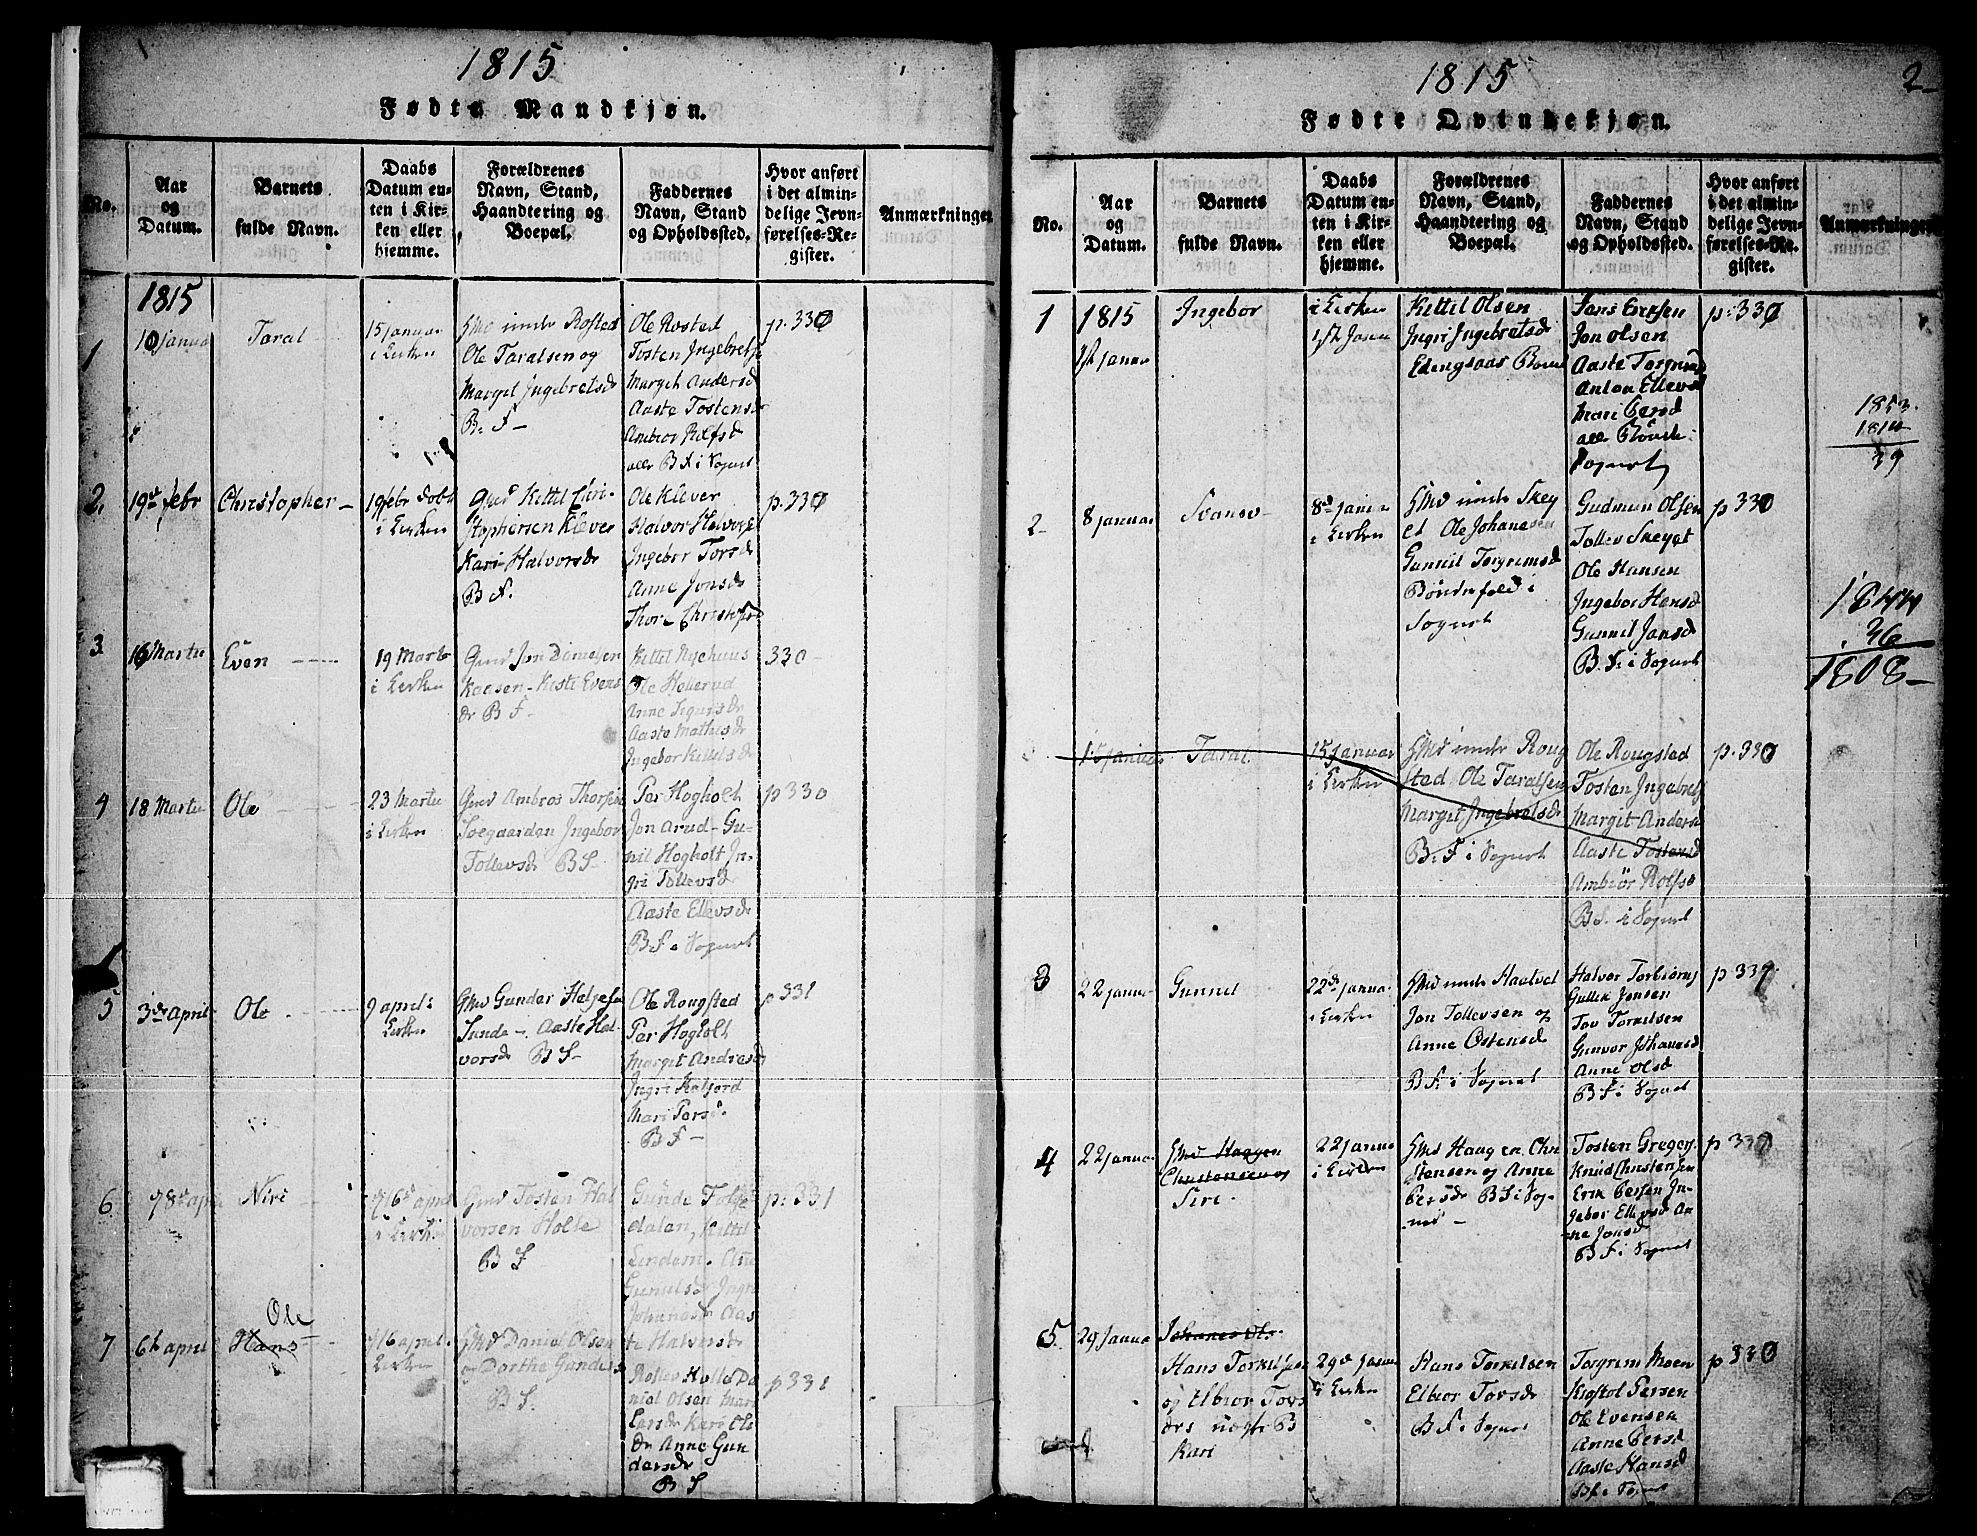 1815
Fødte Mandkjøn.
No.
Aar
og
Datum.
Barnets
fulde Navn.
Daabs
Datum en-
ten i Kir-
ken eller
hjemme.
Forældrenes
Navn, Stand,
Haandtering og
Boepæl.
Faddernes
Navn, Stand
og Opholdssted.
Hvor anført
i det almin-
delige Jevn-
førelses-Re-
gister.
Anmærkninger
1815
1
10 januar
Taral
15 januar
i Kirken
Gmd under Rosted
Ole Taralsen og
Margit Ingebretsdr
B. F -
Ole Rosted
Tosten Ingebrets
Margit Andersd
Aaste Tostens
Ambior Rolfsd
alle B F i Sognet
p. 330
2.
19de febr
Christopher -
19 febr Døbt
i Kirken
Gmd Kittil Chri-
stophersen Klever
Kari Halvorsdr
B F.
Ole Klever
Halvor Halvors
Ingebor Torsd
Anne Jonsdr
Thore Christofs
p. 330
3.
16 Martii
Even
19 Marti
i Kirken
Gmd Jon Danielsen
Kaasen - Kisti Evens
dr B F -
Kittil Nyehuus
Ole Hellerud
Anne Sigursdr
Aaste Mathisdr
Ingebor Kittilsdr
330
4
18 Martii
Ole
23 Martii
i Kirken
Gmd Ambros Thorsen
Soegaarden Ingebor
Tollevsdr B F -
Per Hogholt
Jon Arud - Gu-
nil Hogholt In-
gri Tollevsd
Aaste Ellevsdr
B F i Sognet
p 330
5
3de april
Ole
9 april i
Kirken
Gmd Gunder Helgesen
Sunde - Aaste Hal-
vorsdr B F -
Ole Rougstad
Per Hogholt
Margit Andresd
Ingri Kalford
Mari Persd.
B F -
p 331
6
8de april
Niri
16 april
i Kirken
Gmd Tosten Hal
vorsen Holte
B F
Gunde Folse
dalen, Kittil
Lindem. An
Gunulsdr Ingri
Johanesdr Aas
te Halvorsdr
p. 331
7
6te april
Ole
Hans
16 april
Kirken
Gmd Daniel Olsen
og Dorthe Gunders
B F.
Rollev Holte Da
niel Olsen Mari
Larsdr Kari Ols
dr Anne Gun
dersdr
B F
p 331
1815
2
Fødte Qvindekjøn.
No.
Aar
og
Datum.
Barnets
fulde Navn.
Daabs
Datum en-
ten i Kir-
ken eller
hjemme.
Forældrenes
Navn, Stand,
Haandtering og
Boepæl.
Faddernes
Navn, Stand
og Opholdssted.
Hvor anført
i det almin-
delige Jevn-
førelses-Re-
gister.
Anmærkninger
1
1815
1ste januar
Ingebor
i Kirken
1ste Janu
Kittil Olsen
Ingri Ingebretsdr
Jens Eriksen
Jon Olsen
Aaste Torgrims
Mari Persd
alle
Sognet
p. 330
1853
1814
39
2
8 januar
Svanov
8de januar
i Kirken
Gmd under Skey
et Ole Johanesen
Gunnil Torgrimsd
Bøndefold i
Sognet
Gudmun Olsen
Tollev Skeyet
Ole Hansen
Ingebor Hansd
Gunnil Jonsd
B F i Sognet
p 330
1844
36
1808
15 januar
Taral
15 januar
i Kirken
Gmd under Roug
stad Ole Taralsen
Margit Ingebretsdr
B. F i Sognet
Ole Rougstad
Tosten Ingebrets
Margit Anders
Aaste Tostensd
Ambiør Rolfsd
B F. i Sognet
p. 330
3
22 januar
Gunnil
22de janua.
i Kirken
Gmd under Haatvet
Jon Tollevsen og
Anne Ostensd
B F. i Sognet
Halvor Torbiorns
Gullik Jonsen
Tov Torkilsen
Gunvor Johanesd
Anne Olsd
B F i Sognet
p 331
4
22 janua.
Gmd Haagen
Christensen og
Siri.
22 janua
i Kirken
Gmd Haagen Chri
stensen og Anne
Persdr B F i Sog-
net -
Tosten Gregers
Knud Christensen
Erik Persen In-
gebor Ellevsd An-
ne Jonsd
B F i Sognet
p 330
5.
29 Janua
Johanes Ols.
Hans Torkilsen
og Elbior Tors
drs B
Kari
29de Janua
i Kirken
Hans Torkilsen
Elbior Torsdr
B F. i Sognet
Torgrim Moen
Kristol Persen
Ole Evensen
Anne Persd
Aaste Hansd
B F i Sognet
p 330